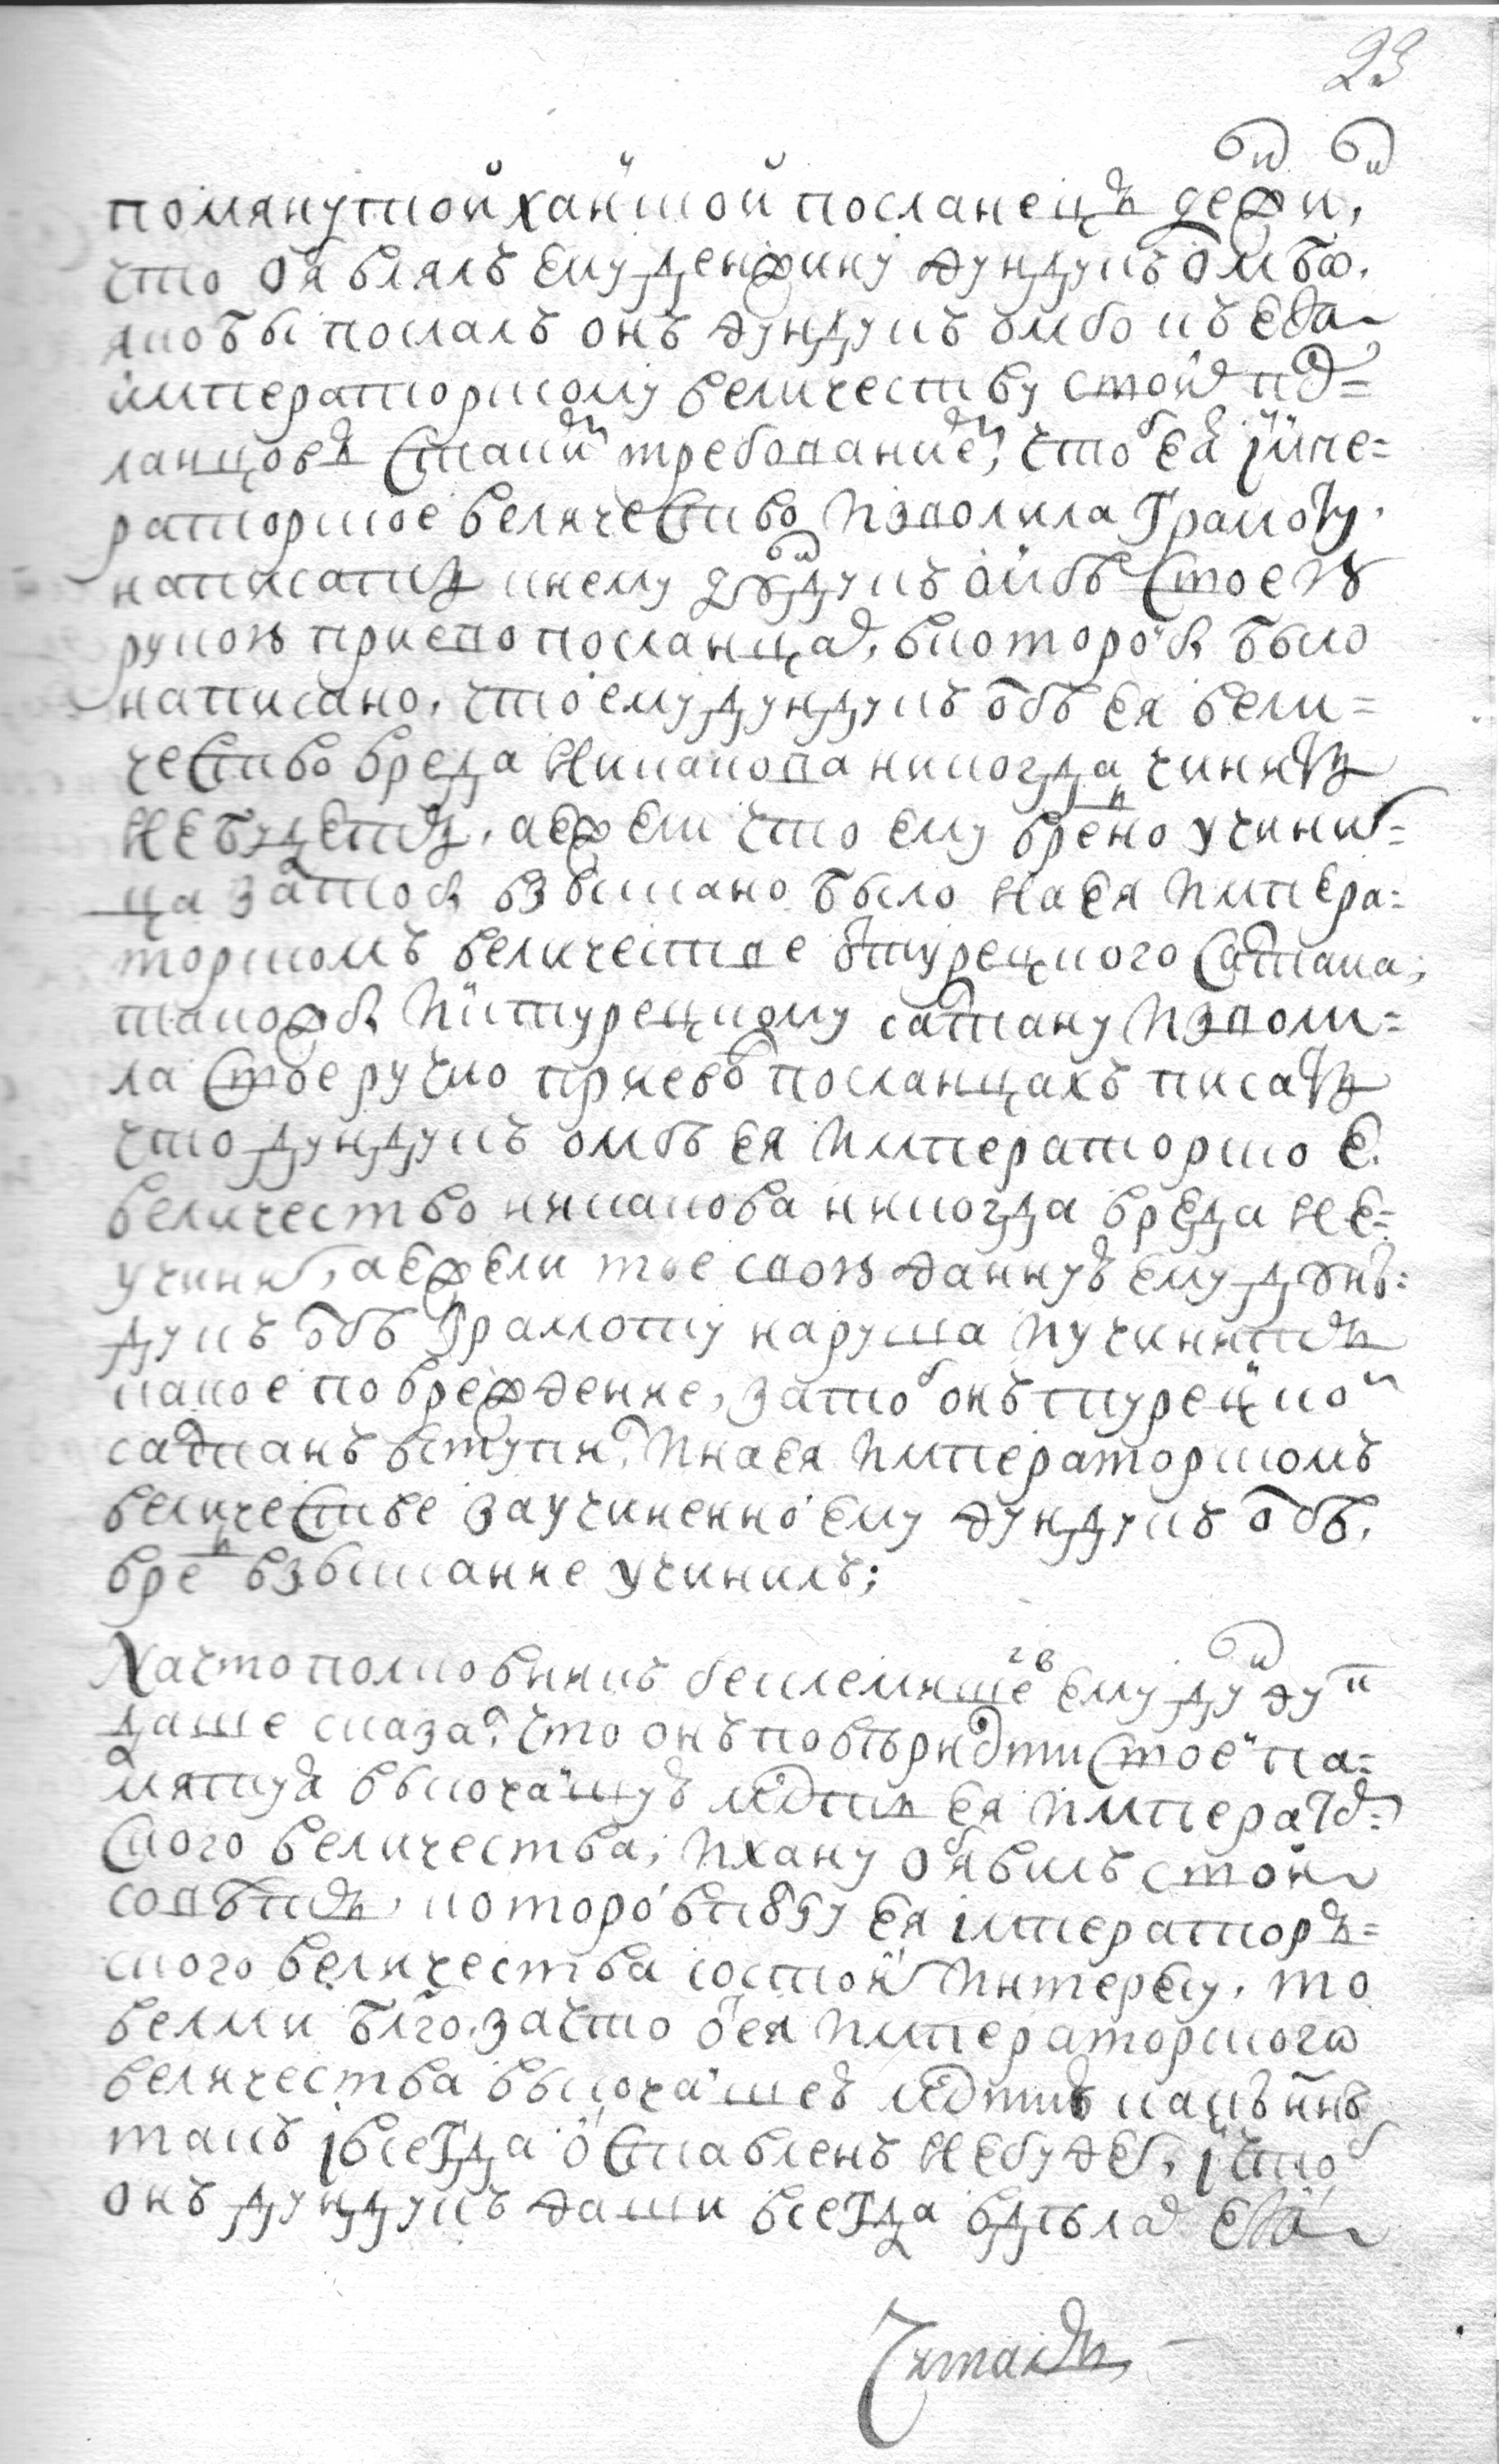 23
помянутой ханшой посланецъ денжин,
что обявлялъ ему денжину дундукъ омбо,
якобы послалъ онъ дундукъ омбо къ ея
императорскому величеству своих по=
сланцовъ с таким требованием, чтоб ея импе=
раторское величество изволила грамоту
написать к нему дундукъ омбе своею
рукою при ево посланцах, в которой было
написано, что ему дундукъ омбе ея вели=
чество вреда никакова никогда чинить
не будетъ, а ежели что ему вредно учинит=
ца за то б взыскано было на ея импера=
торскомъ величестве от турецкого салтана,
також б и к турецкому салтану изволи=
ла своеручно при ево посланцахъ писать
что дундукъ омбе ея императорское
величество никакова никогда вреда не
учинит, а ежели тое свою данную ему дун=
дукъ омбе грамоту наруша и учинитъ
какое повреждение, за то б онъ турецкой
салтанъ вступил и на ея императорскомъ
величестве за учиненной ему дундукъ омбе
вред взыскание учинилъ;
А что полковникъ беклемишев ему дундук
даше сказал, что онъ поверил ... своей па=
мятуя высочайшую милость ея император=
ского величества, и хану обявилъ свои
советъ, которой в ползу ея императоръ=
ского величества состоит интересу, то
велми благо, за что от ея императорского
величества высочайшею милостию какъ ннѣ
такъ и всегда оставленъ не будет, и чтоб
онъ дундукъ даши всегда в дѣлах ея
читать